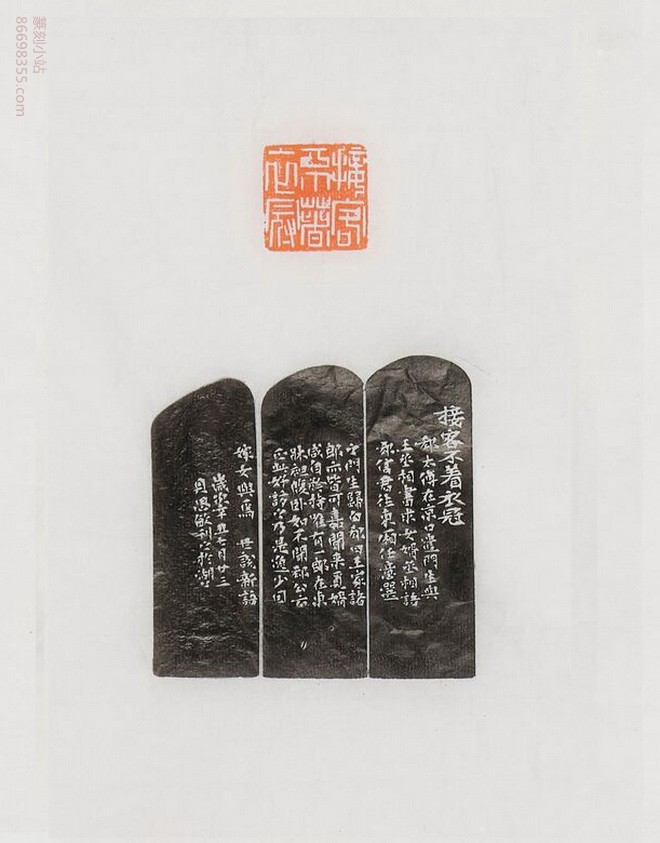 篆刻小站
86698355.com
接客
不著
衣冠
接客不着衣冠
郗太傅在京口遣門生與
王丞相書求女婿丞相語
郗信君往東廂任意選
之門生歸白郗曰王家諸
郎亦皆可嘉聞來覓婿
咸自矜持唯有一郎在東
床袒腹卧如不聞郗公云
正此好訪之乃是逸少因
嫁女與焉 世說新語
歲次辛丑七月廿三